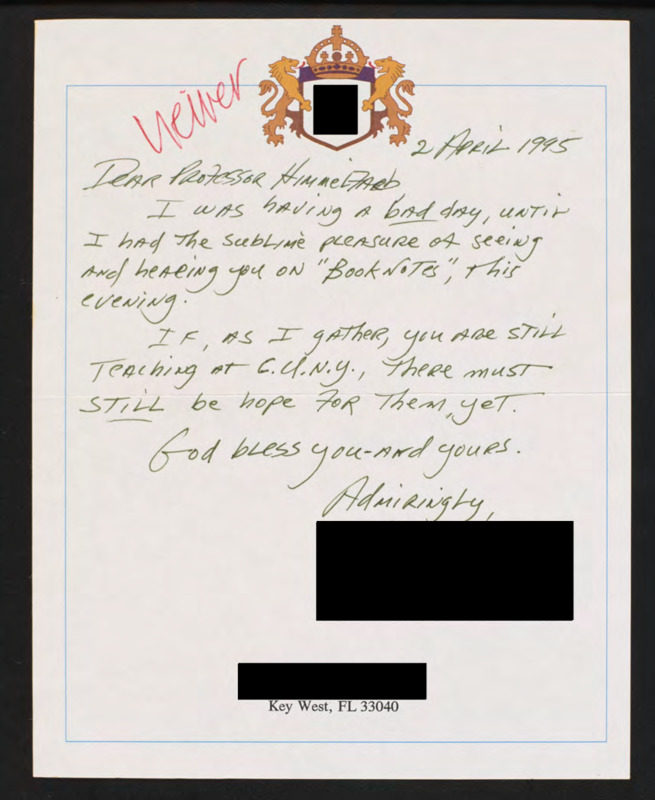 viewer
2 April 1995
Dear Professor Himmelfarb
I was having a bad day, until
I had the sublime pleasure of seeing
and hearing you on "BookNotes", this
evening.
If, as I gather, you are still
teaching at C.U.N.Y., there must
still be hope for them, yet.
God bless you-and yours.
Admiringly,
Key West, FL 33040